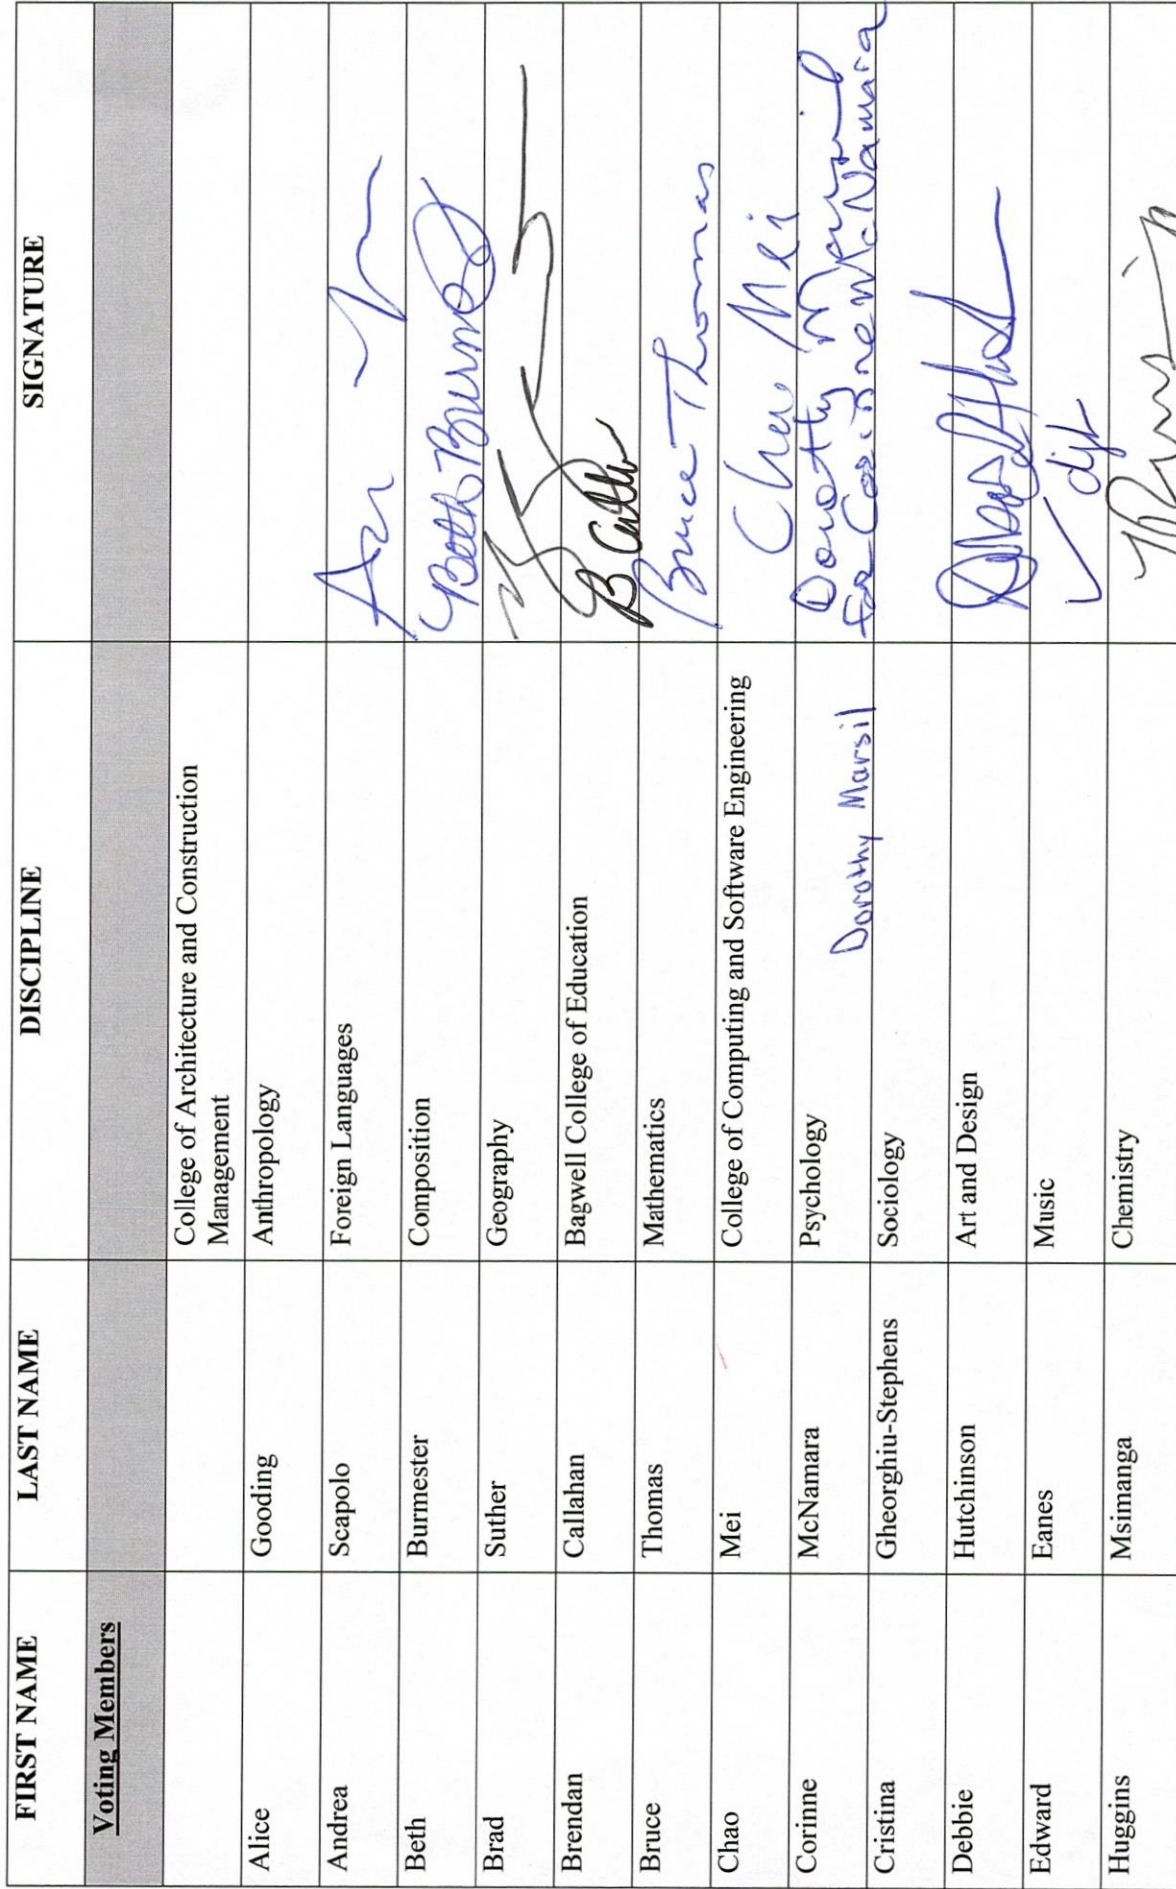 FIRST NAME LAST NAME DISCIPLINE SIGNATURE
Voting Members
College of Architecture and Construction
Management
Alice Gooding Anthropology
Andrea Scapolo Foreign Languages
Beth Burmester Composition Beth Burmester
Brad Suther Geography
Brendan Callahan Bagwell College of Education B Call
Bruce Thomas Mathematics Bruce Thomas
Chao Mei College of Computing and Software Engineering Chao Mei
Corinne McNamara Psychology Dorothy Marsil Dorothy Marsil
for Corinne McNamara
Cristina Gheorghiu-Stephens Sociology
Debbie Hutchinson Art and Design
Edward Eanes Music
Huggins Msimanga Chemistry